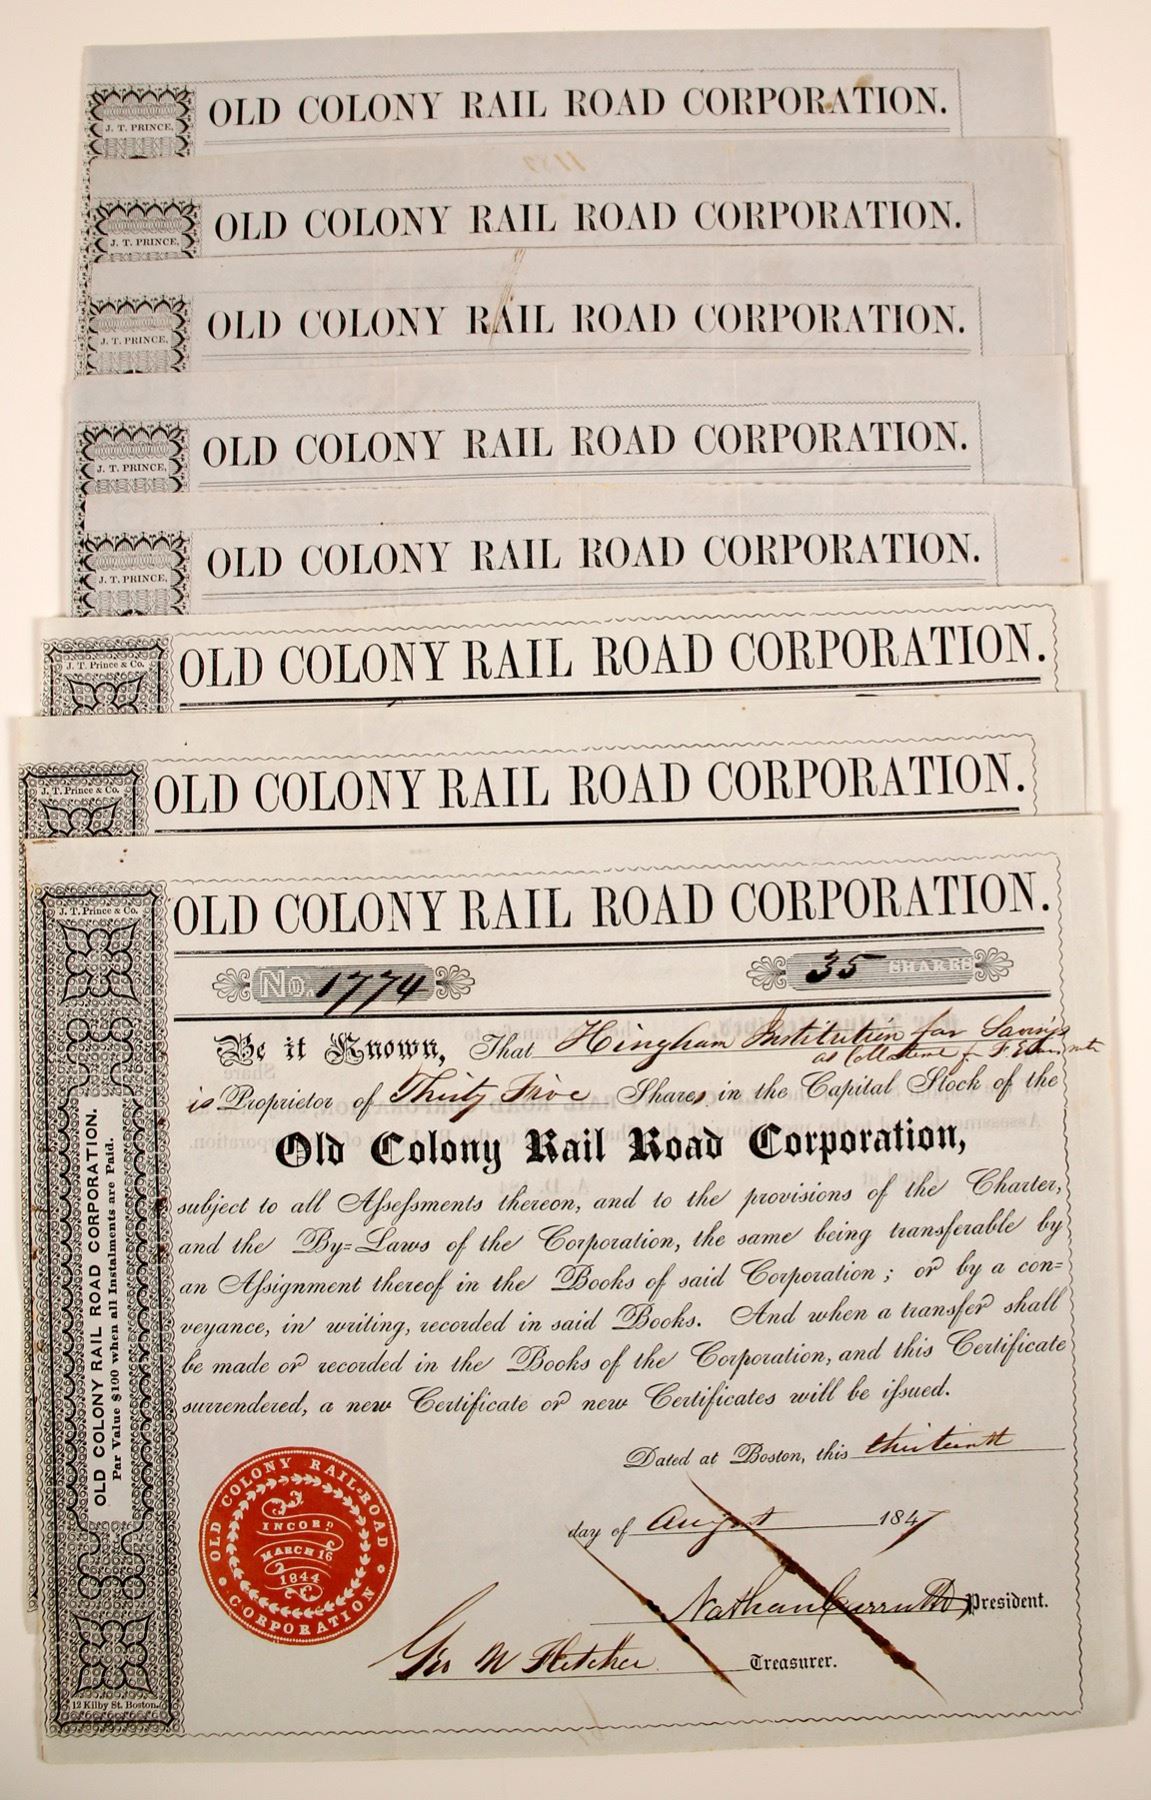 J. T. PRINCE,
OLD COLONY RAIL ROAD CORPORATION.
J. T. PRINCE,
OLD COLONY RAIL ROAD CORPORATION.
J. T. PRINCE,
OLD COLONY RAIL ROAD CORPORATION.
J. T. PRINCE,
OLD COLONY RAIL ROAD CORPORATION.
J. T. PRINCE,
OLD COLONY RAIL ROAD CORPORATION.
J. T. Prince & Co.
OLD COLONY RAIL ROAD CORPORATION.
J. T. Prince & Co.
OLD COLONY RAIL ROAD CORPORATION.
J. T. Prince & Co.
OLD COLONY RAIL ROAD CORPORATION.
No. 1774 35 SHARES
Be it Known, That Hingham Institution for Savings
as Collateral for F
is Proprietor of Thirty Five Shares in the Capital Stock of the
Old Colony Rail Road Corporation,
subject to all Assessments thereon, and to the provisions of the Charter,
and the By=Laws of the Corporation, the same being transferable by
an Assignment thereof in the Books of said Corporation; or by a con=
veyance, in writing, recorded in said Books. And when a transfer shall
be made or recorded in the Books of the Corporation, and this Certificate
surrendered, a new Certificate or new Certificates will be issued.
Dated at Boston, this thirteenth
day of August 1847
Nathan Carruth President.
Geo M Fletcher Treasurer.
OLD COLONY RAIL-ROAD
CORPORATION
INCORP.
MARCH 16
1844
OLD COLONY RAIL ROAD CORPORATION.
Par Value $100 when all Instalments are Paid.
12 Kilby St. Boston.